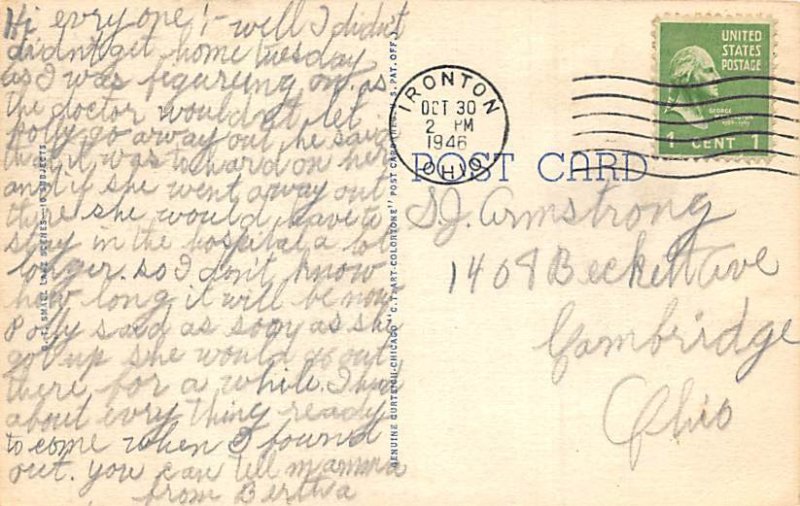 Hi evry one! - well I didn't
didn't get home tuesday
as I was figureing on. as
the doctor wouldn't let
Polly go away out he said
that it was to hard on her
and if she went away out
there she would have to
stay in the hospital a lot
longer. so I don't know
how long it will be now
Polly said as soon as she
got up she would go out
there for a while. I have
about evry thing ready
to come when I found
out. you can tell mamma
from Bertha
SMALL LAKE SCENES—10 SUBJECTS
GENUINE CURTEICH-CHICAGO "C.T. ART-COLORTONE" POST CARD (REG. U.S. PAT. OFF.)
IRONTON
OCT 30
2 PM
1946
OHIO
UNITED
STATES
POSTAGE
GEORGE
1 CENT 1
POST CARD
S.J. Armstrong
1408 Beckett Ave
Cambridge
Ohio